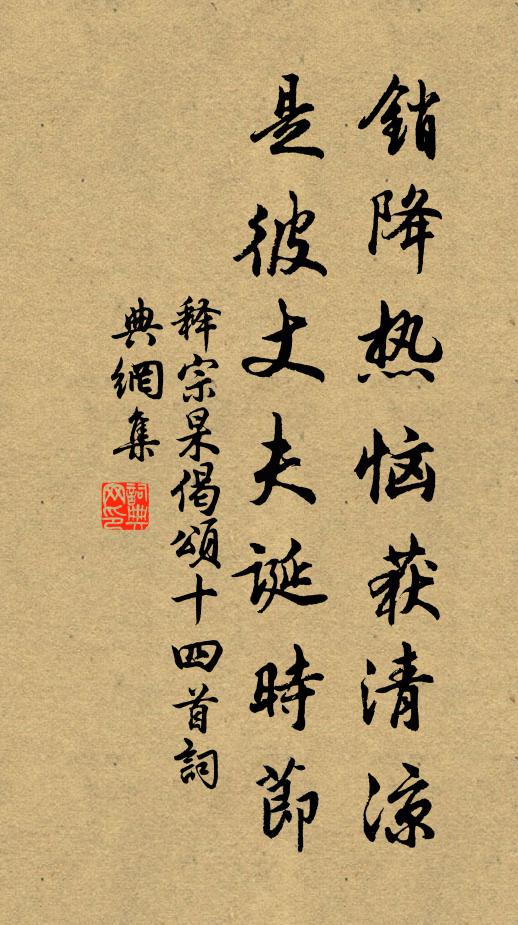 銷降热恼获清涼
是彼丈夫誕時節
释宗杲偈頌十四首詞
典網集
詞典網印